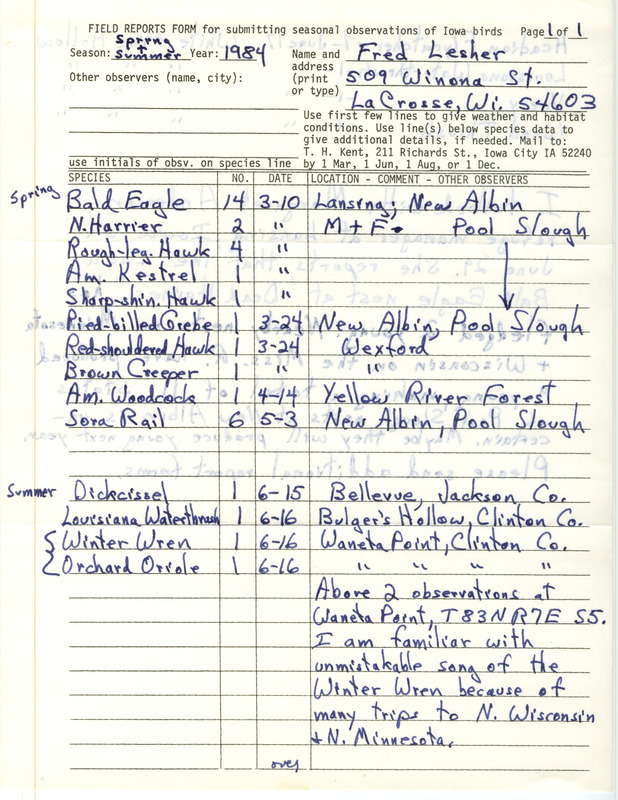 FIELD REPORTS FORM for submitting seasonal observations of Iowa birds Page 1 of 1
Season: Spring + Summer Year: 1984
Name and address (print or type) Fred Lesher
509 Winona St.
LaCrosse, Wi. 54603
Other observers (name, city):
Use first few lines to give weather and habitat
conditions. Use line(s) below species data to
give additional details, if needed. Mail to:
T. H. Kent, 211 Richards St., Iowa City IA 52240
by 1 Mar, 1 Jun, 1 Aug, or 1 Dec.
use initials of obsv. on species line
SPECIES NO. DATE LOCATION - COMMENT - OTHER OBSERVERS
Spring Bald Eagle 14 3-10 Lansing; New Albin
N. Harrier 2 " M + F. Pool Slough
Rough-leg. Hawk 4 "
Am. Kestrel 1 "
Sharp-shin. Hawk 1 "
Pied-billed Grebe 1 3-24 New Albin, Pool Slough
Red-shouldered Hawk 1 3-24 Wexford
Brown Creeper 1 " "
Am. Woodcock 1 4-14 Yellow River Forest
Sora Rail 6 5-3 New Albin, Pool Slough
Summer Dickcissel 1 6-15 Bellevue, Jackson Co.
Louisiana Waterthrush 1 6-16 Bulger's Hollow, Clinton Co.
Winter Wren 1 6-16 Waneta Point, Clinton Co.
Orchard Oriole 1 6-16 " " " "
Above 2 observations at
Waneta Point, T83N R7E S5.
I am familiar with
unmistakable song of the
Winter Wren because of
many trips to N. Wisconsin
+ N. Minnesota.
over